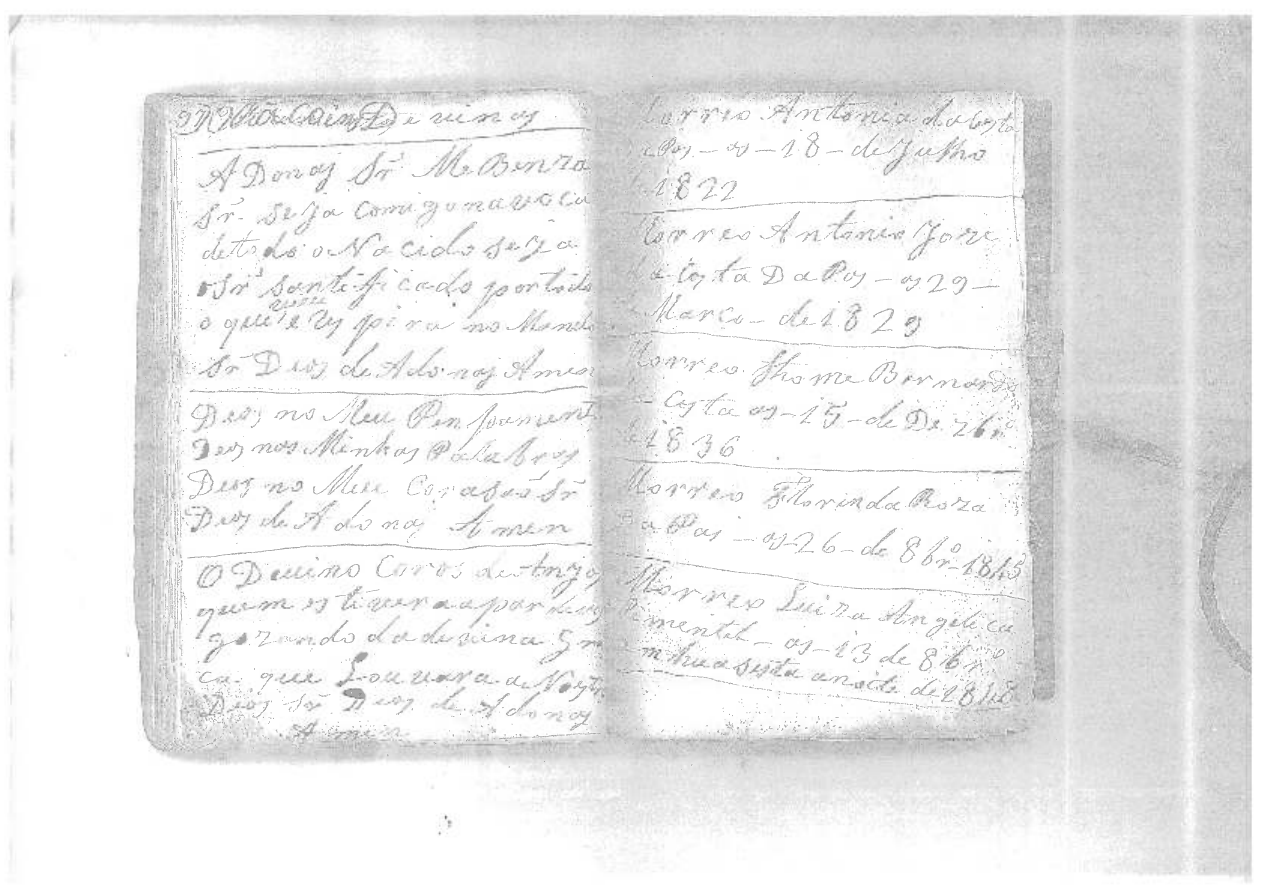 Devinos
A Donaj Sr̃ Me Benza
Sr̃ Seja comigo na voca
de todo o Nacido seja
o Sr̃ santificado por todo
o que vive e Respira no Mundo
Sr̃ Deos de Adonaj Amen
Deos no Meu Penssament
Deos nas Minhas Palabras
Deos no Meu Corasaõ Sr̃
Deos de Adonaj Amen
O Devino Coros de Anjos
quem estivera a par de vos
gozando da devina Gra
ca que Louvara a Nosso
Deos Sr̃ Deos de Adonaj
Amen
Morreo Antonia da Costa
da Pas - os - 18 - de Julho
de 1822
Morreo Antonio Joze
da Costa Da Pas - os 29 -
Marco - de 1829
Morreo Thome Bernardo
da Costa os - 15 - de Dezbr.º
de 1836
Morreo Florinda Roza
Da Pas - os - 26 - de 8br.º - 1845
Morreo Luiza Angelica
Pimentel - os - 13 de 8br.º
em hua sesta a noite de 1848